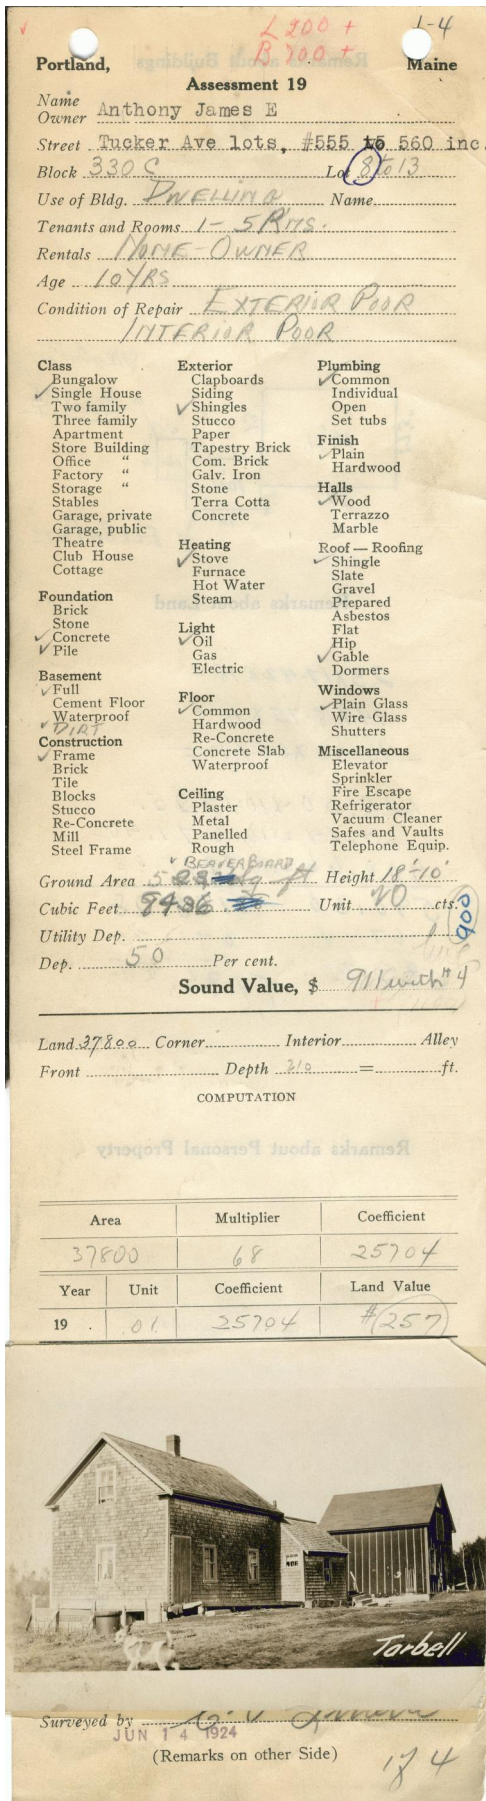 L 200 +
B 700 +
1-4
Portland, Maine
Assessment 19
Name
Owner Anthony James E
Street Tucker Ave lots, #555 to 560 inc.
Block 330 C Lot 8 to 13
Use of Bldg. DWELLING Name
Tenants and Rooms 1 - 5 R'MS.
Rentals NONE - OWNER
Age 10 YRS
Condition of Repair EXTERIOR POOR
INTERIOR POOR
Class
✓ Bungalow
✓ Single House
Two family
Three family
Apartment
Store Building
Office "
Factory "
Storage "
Stables
Garage, private
Garage, public
Theatre
Club House
Cottage
Foundation
Brick
Stone
✓ Concrete
✓ Pile
Basement
✓ Full
Cement Floor
Waterproof
✓ DIRT
Construction
✓ Frame
Brick
Tile
Blocks
Stucco
Re-Concrete
Mill
Steel Frame
Exterior
Clapboards
Siding
✓ Shingles
Stucco
Paper
Tapestry Brick
Com. Brick
Galv. Iron
Stone
Terra Cotta
Concrete
Heating
✓ Stove
Furnace
Hot Water
Steam
Light
✓ Oil
Gas
Electric
Floor
✓ Common
Hardwood
Re-Concrete
Concrete Slab
Waterproof
Ceiling
Plaster
Metal
Panelled
Rough
✓ BEAVERBOARD
Plumbing
✓ Common
Individual
Open
Set tubs
Finish
✓ Plain
Hardwood
Halls
✓ Wood
Terrazzo
Marble
Roof — Roofing
✓ Shingle
Slate
Gravel
Prepared
Asbestos
Flat
Hip
✓ Gable
Dormers
Windows
✓ Plain Glass
Wire Glass
Shutters
Miscellaneous
Elevator
Sprinkler
Fire Escape
Refrigerator
Vacuum Cleaner
Safes and Vaults
Telephone Equip.
Ground Area sq ft Height 18'-10'
Cubic Feet 9486 Unit 20 cts.
900
Utility Dep.
Dep. 50 Per cent.
Sound Value, $ 911 with # 4
Land 37800 Corner Interior Alley
Front Depth 210 = ft.
COMPUTATION
Area Multiplier Coefficient
37800 68 25704
Year Unit Coefficient Land Value
19 . .01 25704 # 257
Tarbell
Surveyed by
JUN 14 1924
(Remarks on other Side)
1 of 4